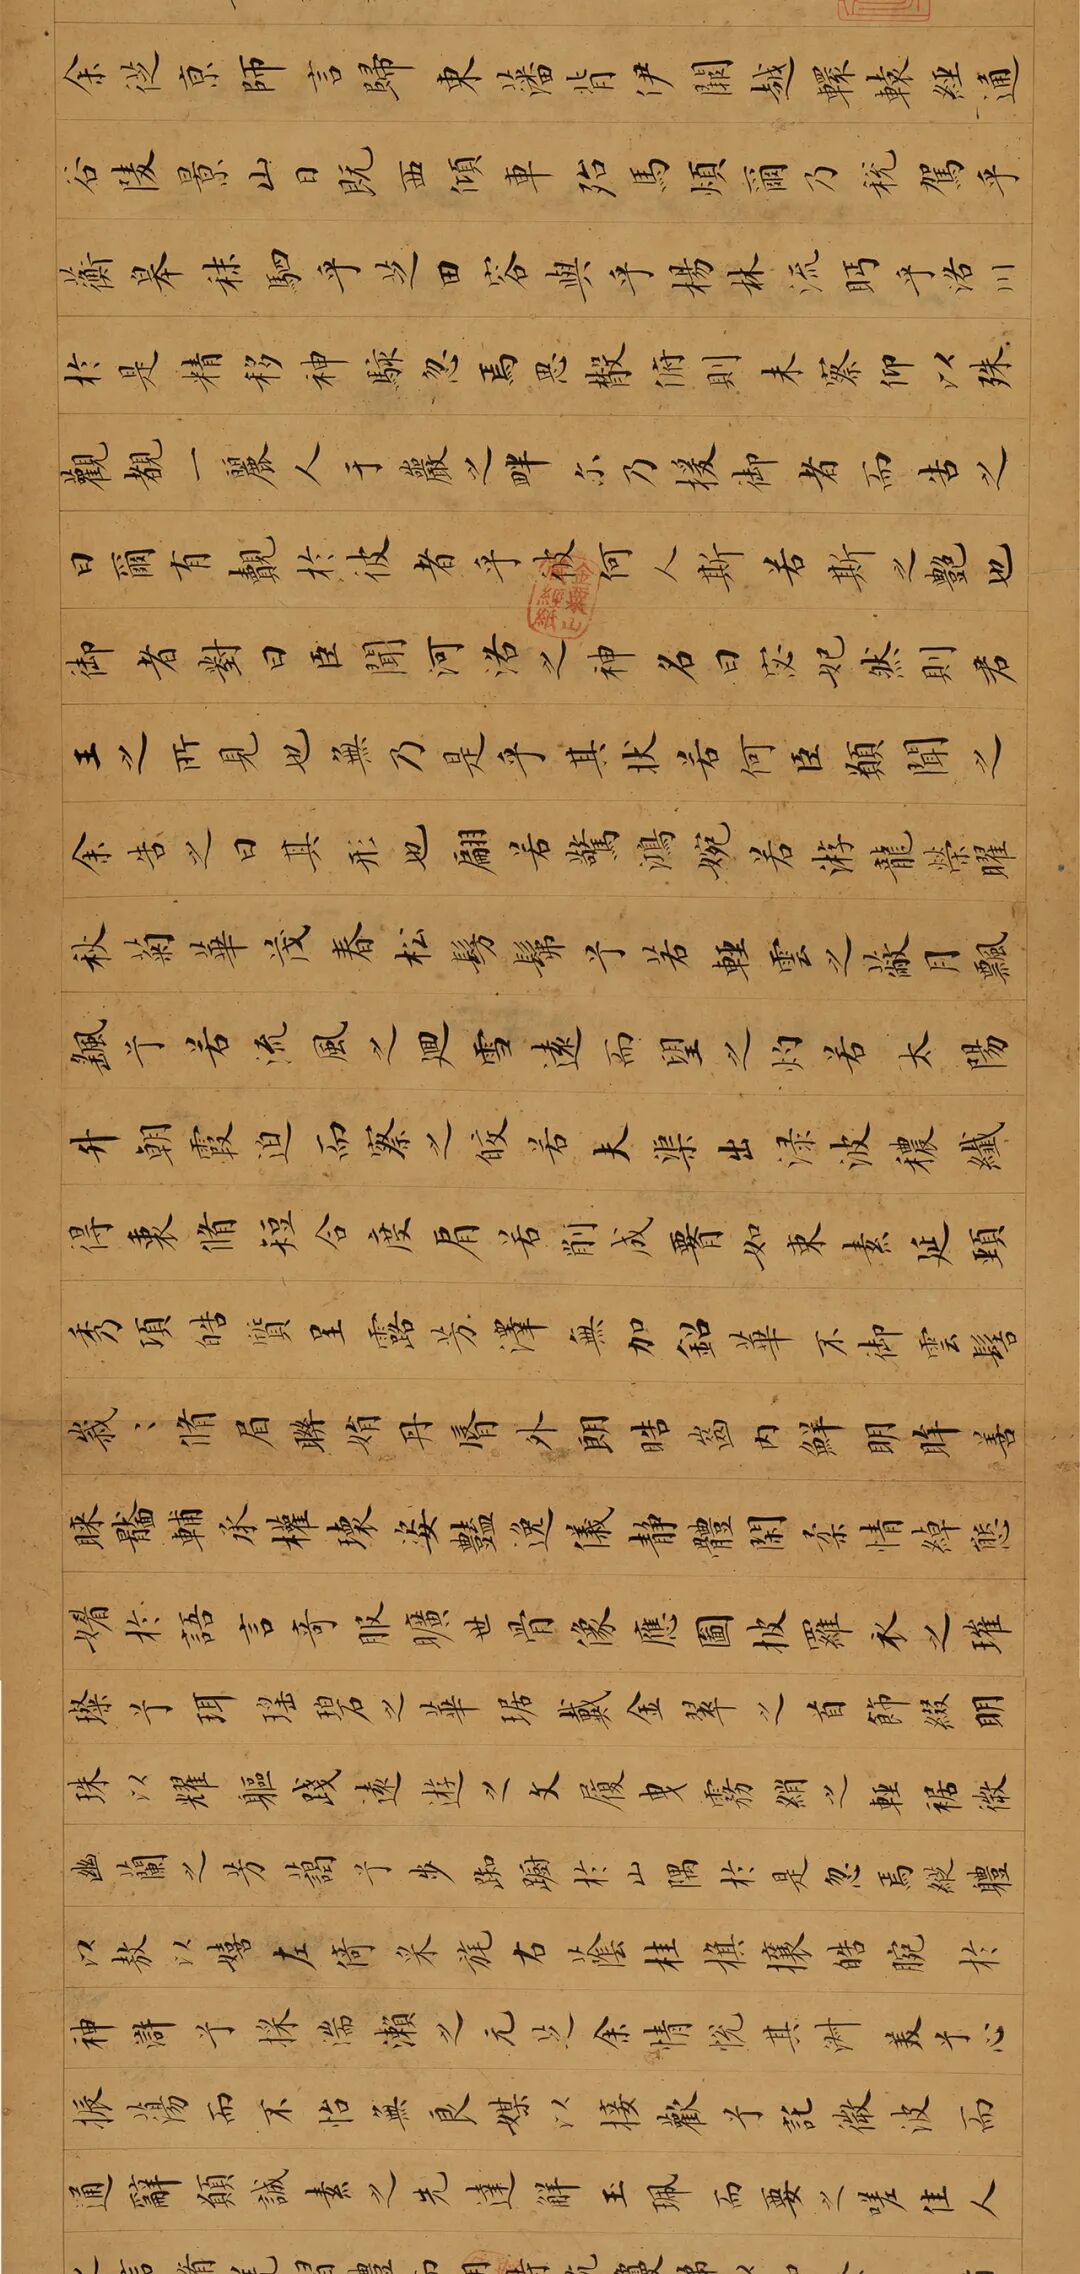 余從京師言歸東藩背伊闕越轘轅經通
谷陵景山日既西傾車殆馬煩爾乃稅駕乎
蘅皋秣駟乎芝田容與乎楊林流眄乎洛川
於是精移神駭忽焉思散俯則未察仰以殊
觀覩一麗人于巖之畔尔乃援御者而告之
曰爾有覿於彼者乎彼何人斯若斯之艷也
御者對曰臣聞河洛之神名曰宓妃然則君
王之所見也無乃是乎其狀若何臣願聞之
余告之曰其形也翩若驚鴻婉若游龍榮曜
秋菊華茂春松髣髴兮若輕雲之蔽月飄
飖兮若流風之迴雪遠而望之灼若太陽
升朝霞迫而察之皎若夫渠出淥波穠纖
得衷脩短合度肩若削成要如束素延頸
秀項皓質呈露芳澤無加鉛華不御雲髻
峩〻脩眉聯娟丹脣外朗皓齒内鮮明眸善
睞靨輔承權瓌姿豔逸儀靜體閑柔情綽態
媚於語言奇服曠世骨像應圖披羅衣之璀
璨兮珥瑤碧之華琚戴金翠之首飾綴明
珠以耀軀踐遠遊之文履曳霧綃之輕裾微
幽蘭之芳藹兮步踟躕於山隅於是忽焉縱體
以敖以嬉左倚采旄右蔭桂旗攘皓腕於
神滸兮採湍瀨之元芝余情悅其淑美兮心
振蕩而不怡無良媒以接歡兮託微波而
通辭願誠素之先達解玉珮而要之嗟佳人